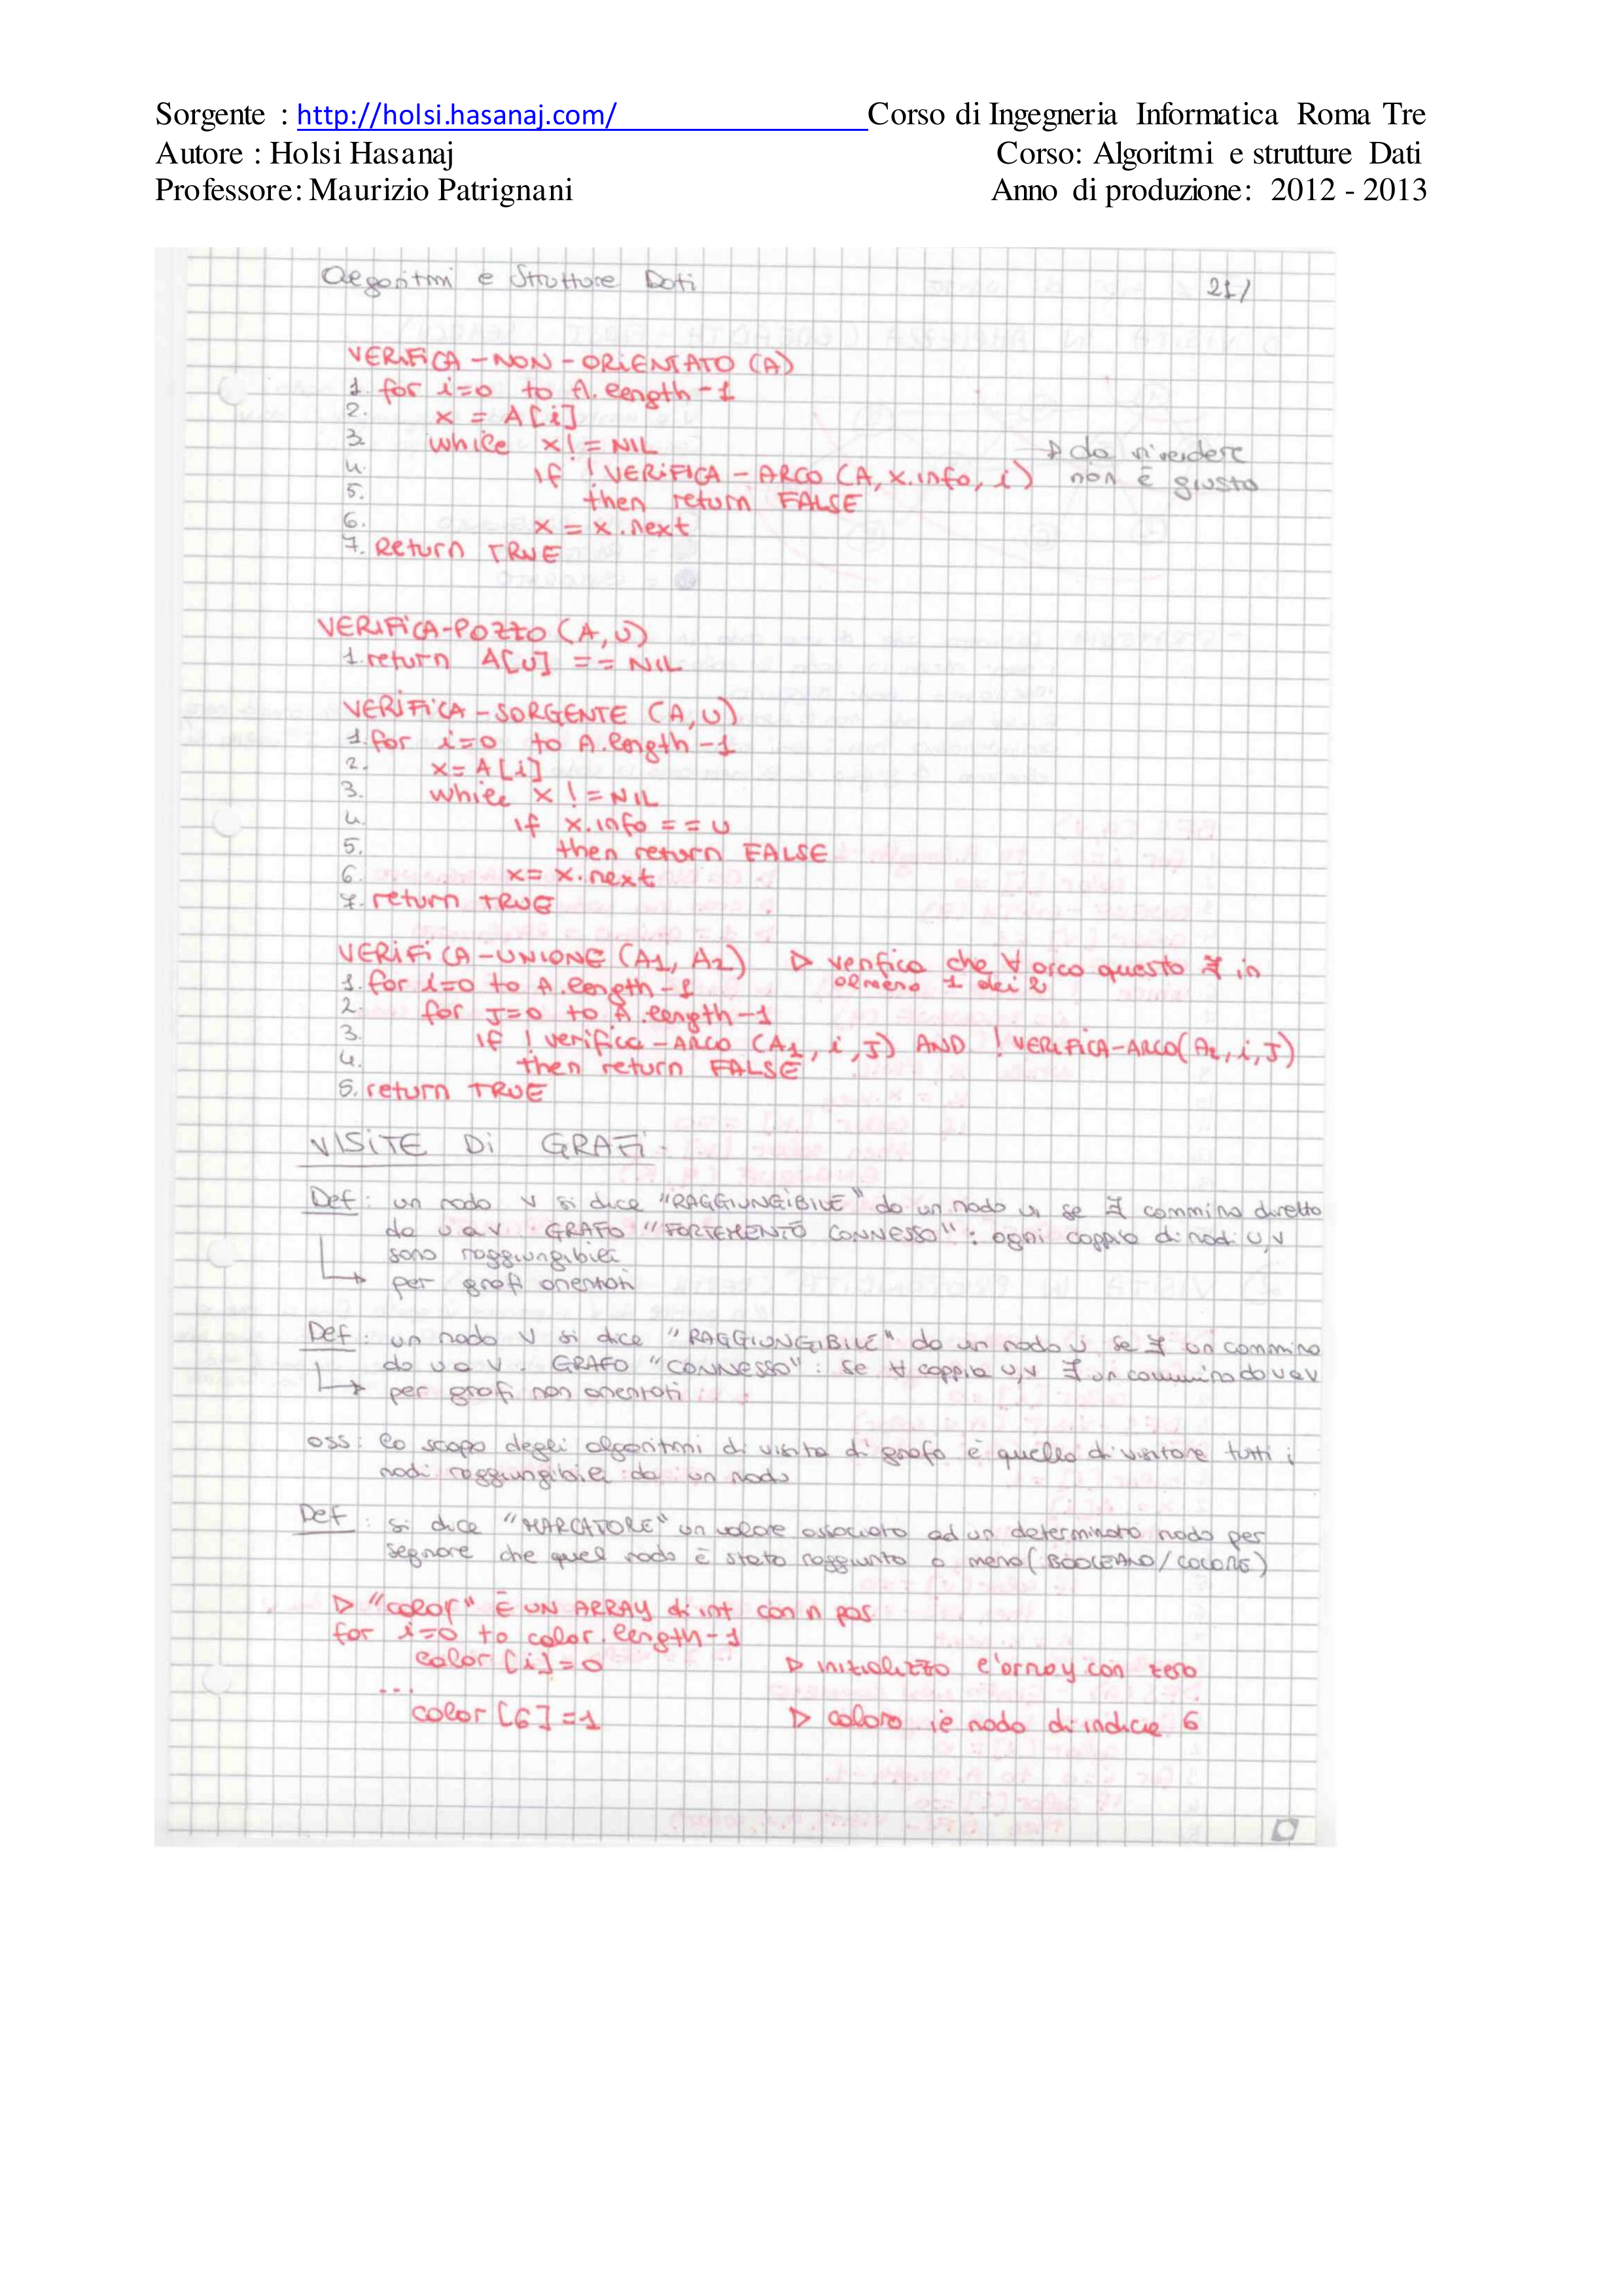 Sorgente : http://holsi.hasanaj.com/ Corso di Ingegneria Informatica Roma Tre
Autore : Holsi Hasanaj Corso: Algoritmi e strutture Dati
Professore: Maurizio Patrignani Anno di produzione: 2012 - 2013
Algoritmi e Strutture Dati 21/
VERIFICA-NON-ORIENTATO (A)
1. for i=0 to A.length-1
2. x = A[i]
3. while x != NIL
4. if ! VERIFICA-ARCO (A, x.info, i) ▷ da rivedere
non è giusto
5. then return FALSE
6. x = x.next
7. Return TRUE
VERIFICA-POZZO (A, U)
1. return A[U] == NIL
VERIFICA-SORGENTE (A, U)
1. for i=0 to A.length-1
2. x = A[i]
3. while x != NIL
4. if x.info == U
5. then return FALSE
6. x = x.next
7. return TRUE
VERIFICA-UNIONE (A1, A2) ▷ verifico che ∀ arco questo ∃ in
almeno 1 dei 2
1. for i=0 to A.length-1
2. for J=0 to A.length-1
3. if ! verifica-ARCO (A1, i, J) AND ! VERIFICA-ARCO(A2, i, J)
4. then return FALSE
5. return TRUE
VISITE DI GRAFI
Def: un nodo v si dice "RAGGIUNGIBILE" da un nodo u se ∃ cammino diretto
da u a v. GRAFO "FORTEMENTO CONNESSO": ogni coppia di nodi u,v
sono raggiungibili
↳ per grafi orientati
Def: un nodo v si dice "RAGGIUNGIBILE" da un nodo u se ∃ un cammino
da u a v. GRAFO "CONNESSO": se ∀ coppia u,v ∃ un cammino da u a v
↳ per grafi non orientati
oss: lo scopo degli algoritmi di visita di grafo è quello di visitare tutti i
nodi raggiungibili da un nodo
Def: si dice "MARCATORE" un valore associato ad un determinato nodo per
segnare che quel nodo è stato raggiunto o meno (BOOLEANO/COLORE)
▷ "color" È UN ARRAY di int con n pos
for i=0 to color.length-1
color[i]=0 ▷ inizializzo l'array con zero
...
color[6]=1 ▷ coloro il nodo di indice 6